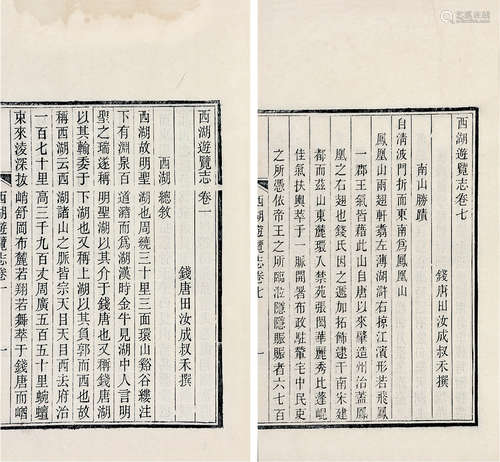 西湖遊覽志卷一
錢唐田汝成叔禾撰
西湖總敘
西湖故明聖湖也周繞三十里三面環山谿谷縷注
下有淵泉百道瀦而為湖漢時金牛見湖中人言明
聖之瑞遂稱明聖湖以其介于錢唐也又稱錢唐湖
以其輸委于下湖也又稱上湖以其負郭而西也故
稱西湖云西湖諸山之脈皆宗天目天目西去府治
一百七十里高三千九百丈周廣五百五十里蜿蟺
東來淩深拔峭舒岡布麓若翔若舞萃于錢唐而崷
西湖遊覽志卷一 一
西湖遊覽志卷七
錢唐田汝成叔禾撰
南山勝蹟
自清波門折而東南為鳳凰山
鳳凰山兩翅軒翥左薄湖滸右掠江濱形若飛鳳
一郡王氣皆藉此山自唐以來肇造州治蓋鳳
凰之右翅也錢氏因之遞加拓飾逮于南宋建
都而茲山東麓環入禁苑張閎華麗秀比蓬崐
佳氣扶輿萃于一脈開署布政駐輦宅中民吏
之所憑依帝王之所臨涖隱隱賑賑者六七百
西湖遊覽志卷七 一